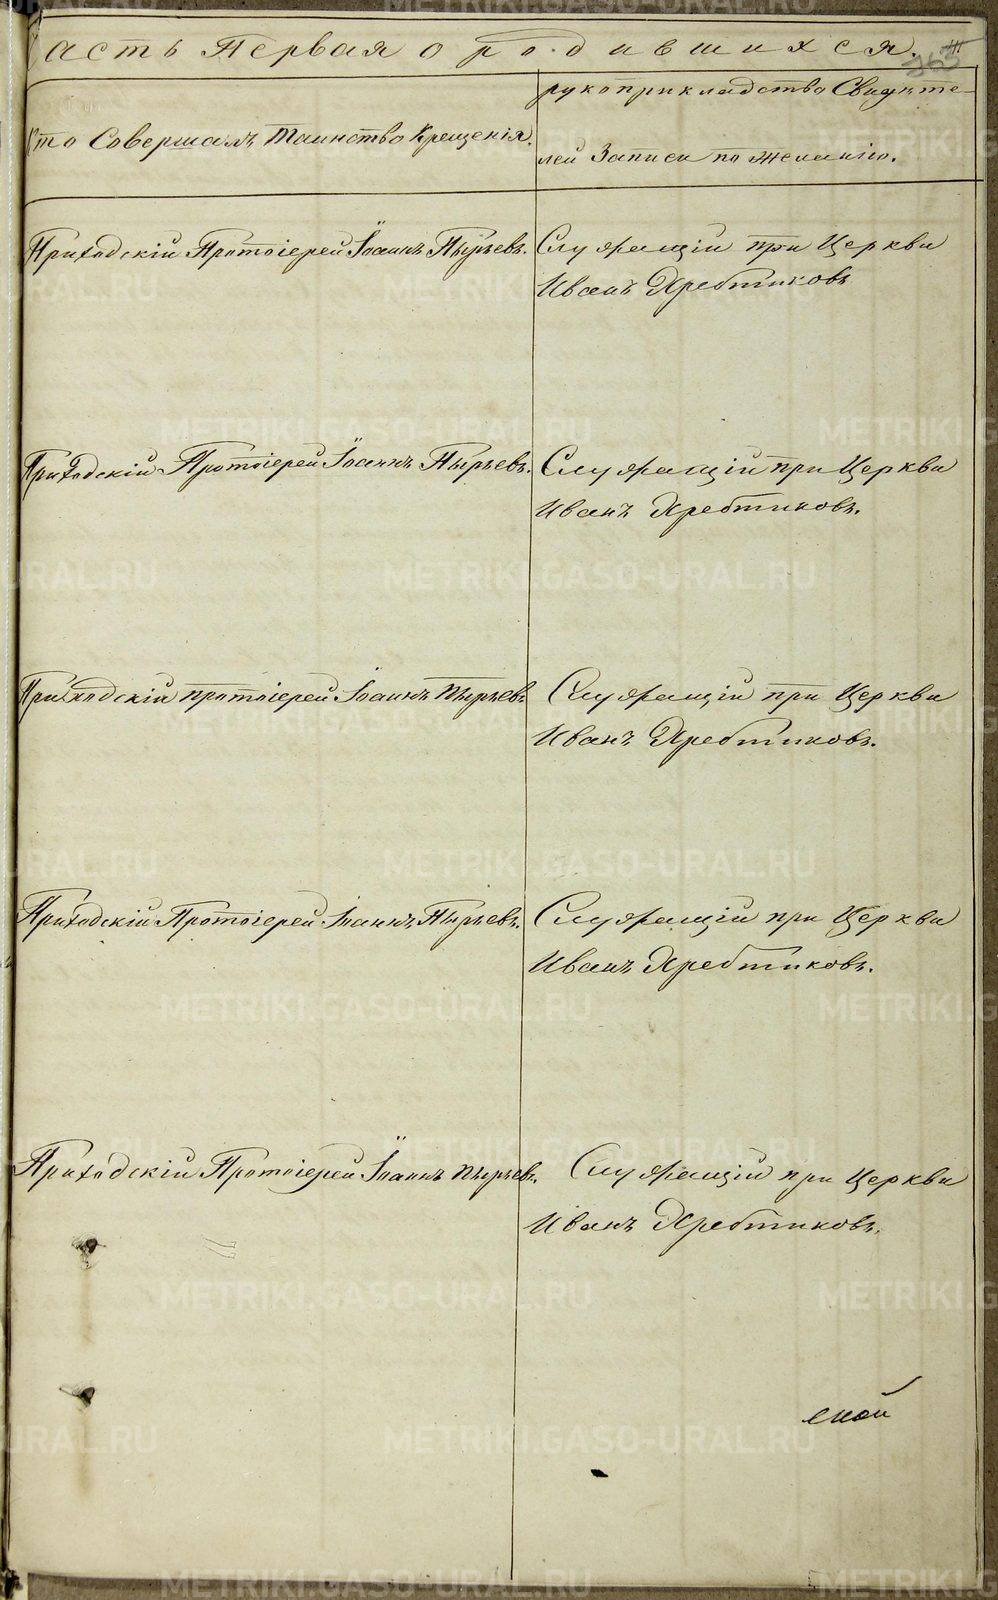 асть Первая о родившихся.
Кто Совершалъ Таинство Крещенія.
рукоприкладство Свидѣте-
лей Записи по желанію.
Приходскій Протоіерей Іоаннъ Пырьевъ.
Служащій при Церкви
Иванъ Хребтиковъ
Приходскій Протоіерей Іоаннъ Пырьевъ.
Служащій при Церкви
Иванъ Хребтиковъ.
Приходскій протоіерей Іоаннъ Пырьевъ
Служащій при Церкви
Иванъ Хребтиковъ.
Приходскій Протоіерей Іоаннъ Пырьевъ.
Служащій при Церкви
Иванъ Хребтиковъ.
Приходскій Протоіерей Іоаннъ Пырьевъ.
Служащій при Церкви
Иванъ Хребтиковъ.
ской
METRIKI.GASO-URAL.RU